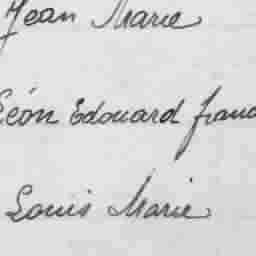 Jean Marie
Léon Edouard franc
Louis Marie